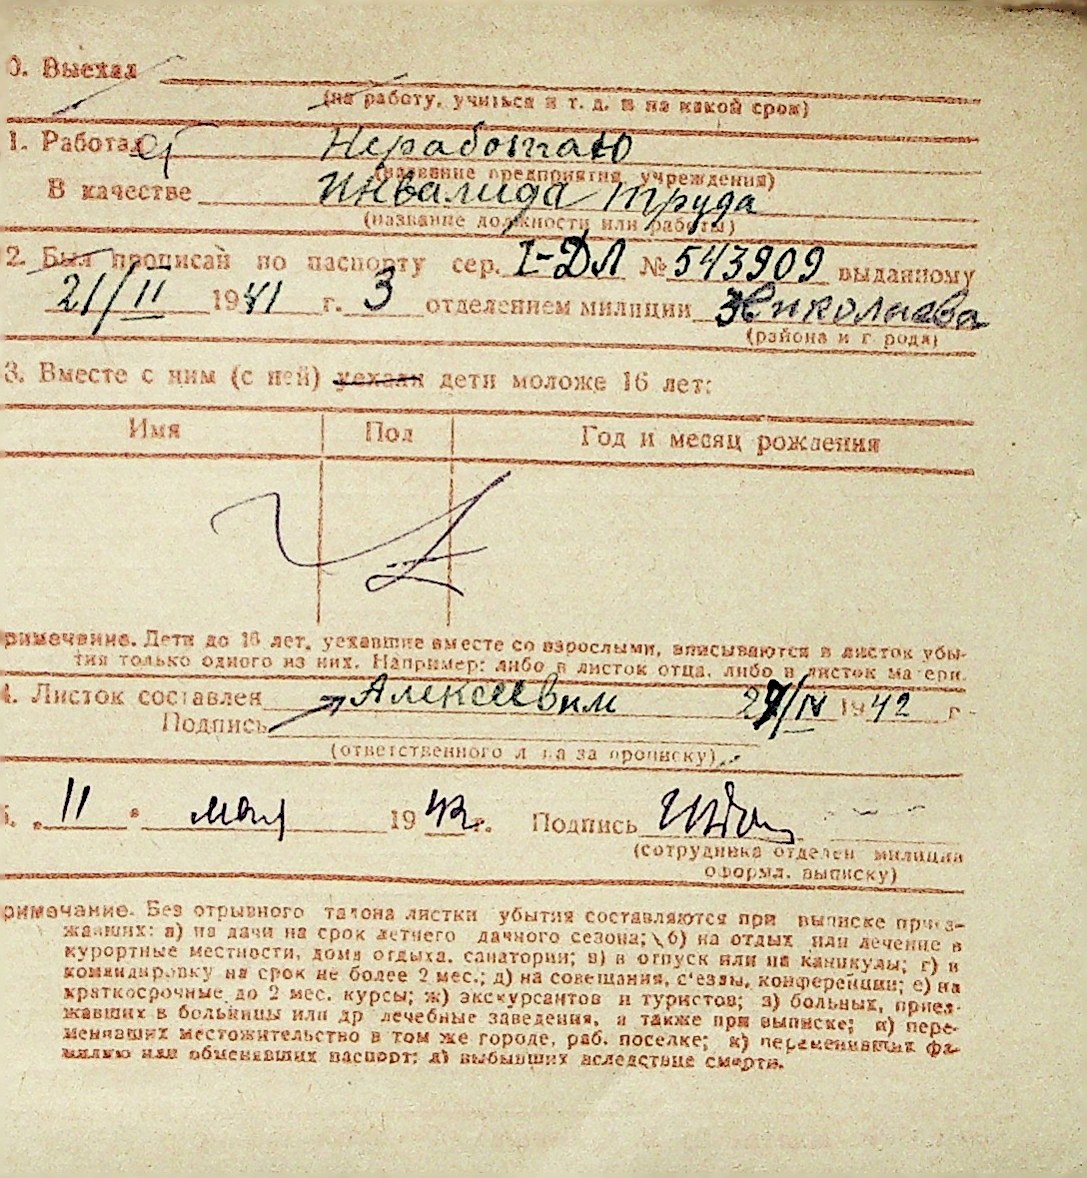 0. Выехал
(на работу, учиться и т. д. и на какой срок)
1. Работает Неработаю
(название предприятия, учреждения)
В качестве Инвалида труда
(название должности или работы)
2. Был прописан по паспорту сер. I-ДЛ № 543909 выданному
21/II 1941 г. 3 отделением милиции Николаева
(района и г рода)
3. Вместе с ним (с ней) уехали дети моложе 16 лет:
Имя Пол Год и месяц рождения
римечание. Дети до 16 лет, уехавшие вместе со взрослыми, вписываются в листок убы-
тия только одного из них. Например: либо в листок отца, либо в листок матери.
4. Листок составлен Алексеевим 27/IV 1942 г
Подпись
(ответственного л ца за прописку)
5. „ 11 " мая 1942 г. Подпись
(сотрудника отделен милиции
оформл. выписку)
римечание. Без отрывного талона листки убытия составляются при выписке приез-
жавших: а) на дачи на срок летнего дачного сезона; б) на отдых или лечение в
курортные местности, дома отдыха, санатории; в) в отпуск или на каникулы; г) в
командировку на срок не более 2 мес.; д) на совещания, с'езды, конференции; е) на
краткосрочные до 2 мес. курсы; ж) экскурсантов и туристов; з) больных, приез-
жавших в больницы или др лечебные заведения, а также при выписке; и) пере-
менивших местожительство в том же городе, раб. поселке; к) переменивших фа-
милию или обменявших паспорт; л) выбывших вследствие смерти.